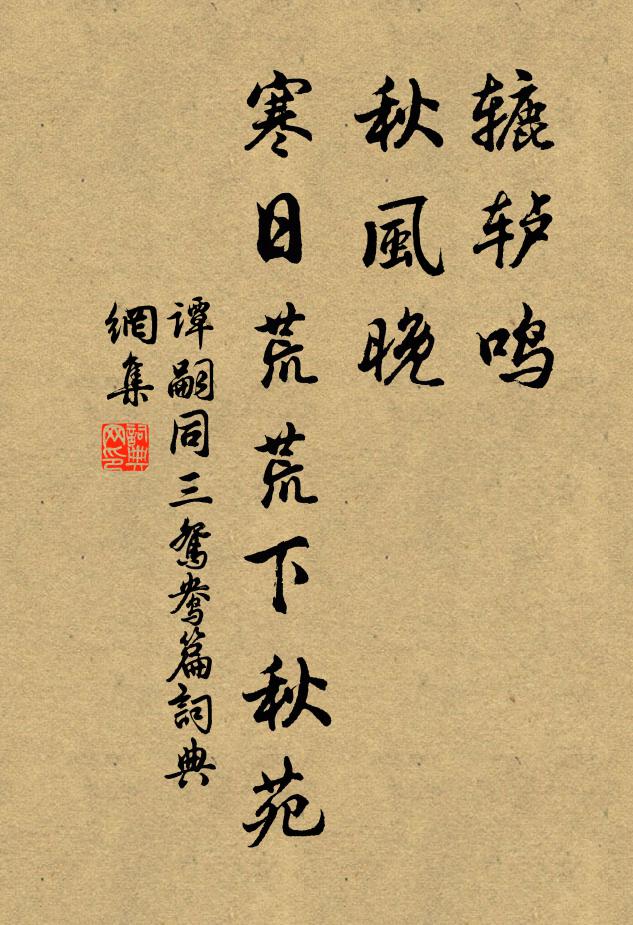 辘轳鸣
秋風晚
寒日荒荒下秋苑
谭嗣同三鴛鴦篇詞典
網集
詞典
网印